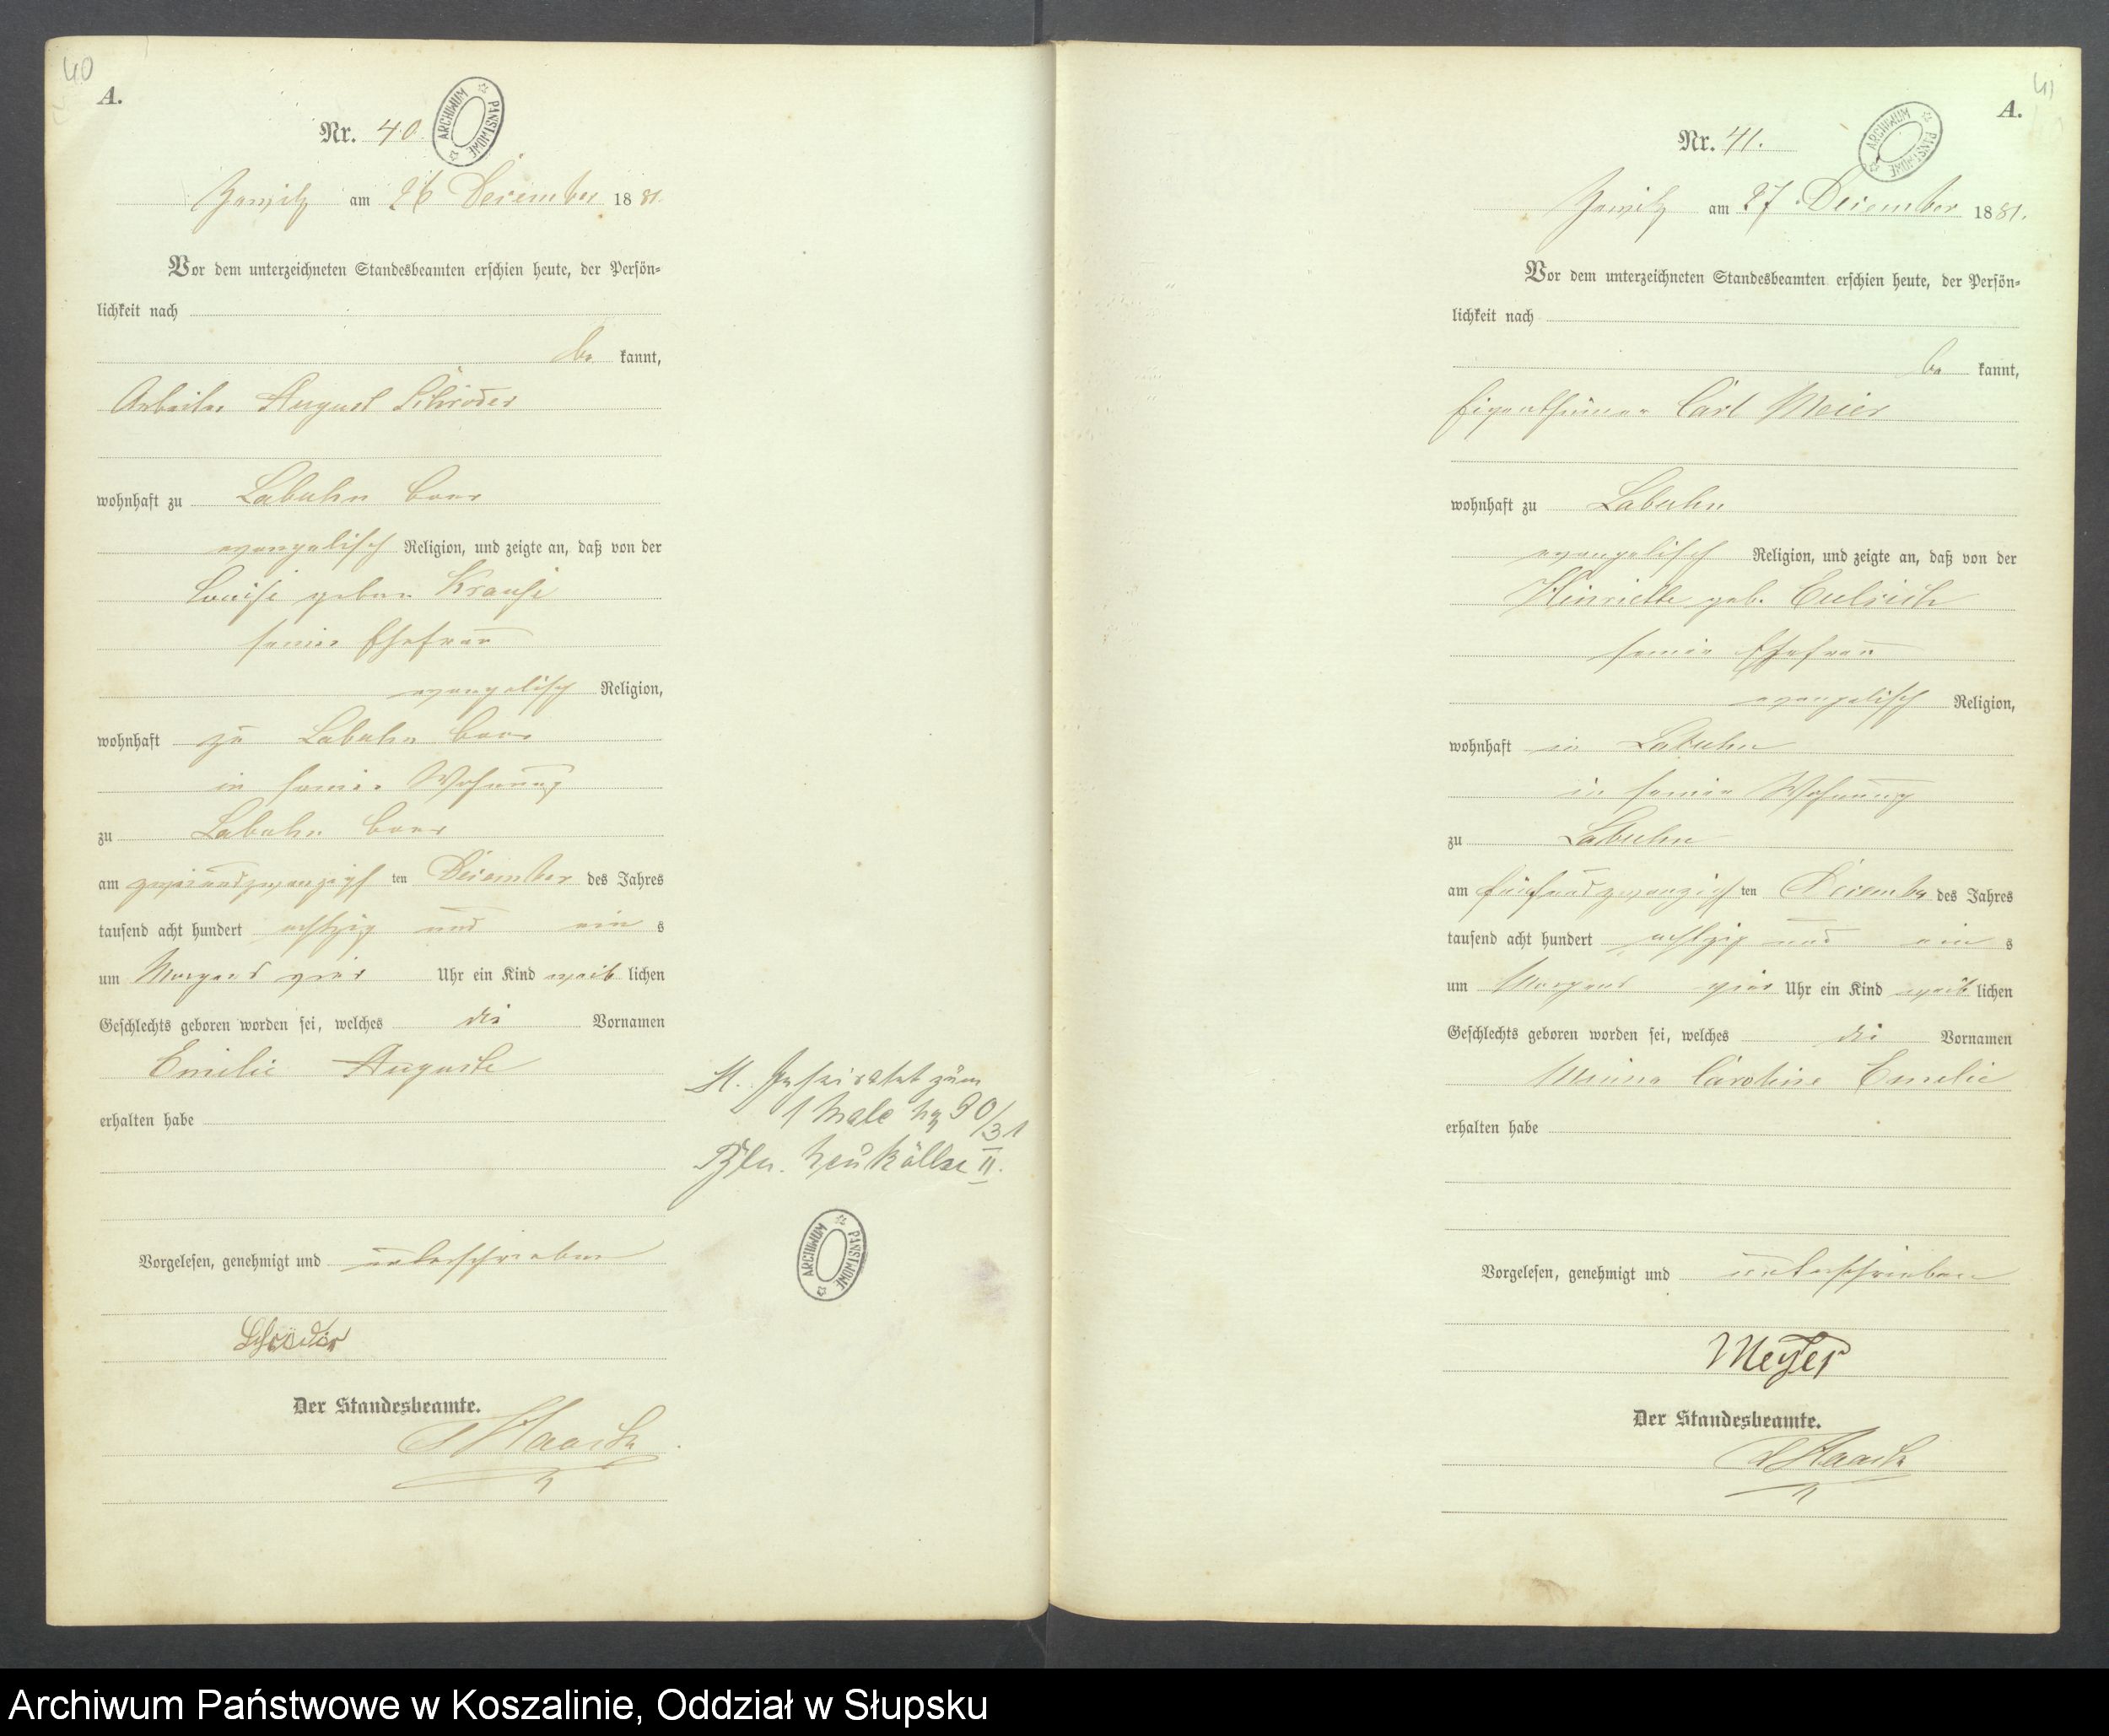 40
A.
Nr. 40.
ARCHIWUM PAŃSTWOWE
am 26 December 1881.
Vor dem unterzeichneten Standesbeamten erschien heute, der Persön-
lichkeit nach
be kannt,
Arbeiter August Schröder
wohnhaft zu Labuhn
evangelisch Religion, und zeigte an, daß von der
Louise geboren Krause
seiner Ehefrau
evangelisch Religion,
wohnhaft zu Labuhn
in seiner Wohnung
zu Labuhn
am zweiundzwanzigs ten December des Jahres
tausend acht hundert achtzig und ein s
um Morgens vier Uhr ein Kind weib lichen
Geschlechts geboren worden sei, welches die Vornamen
Emilie Auguste
erhalten habe
Vorgelesen, genehmigt und unterschrieben
Schröder
Der Standesbeamte.
Haack
H. Geheiratet zum
1 Male 90/31
Bln. Neukölln II.
ARCHIWUM PAŃSTWOWE
41
A.
Nr. 41.
ARCHIWUM PAŃSTWOWE
am 27 December 1881.
Vor dem unterzeichneten Standesbeamten erschien heute, der Persön-
lichkeit nach
be kannt,
Eigenthümer Carl Meier
wohnhaft zu Labuhn
evangelisch Religion, und zeigte an, daß von der
Henriette geb.
seiner Ehefrau
evangelisch Religion,
wohnhaft in Labuhn
in seiner Wohnung
zu Labuhn
am fünfundzwanzigs ten December des Jahres
tausend acht hundert achtzig und ein s
um Morgens vier Uhr ein Kind weib lichen
Geschlechts geboren worden sei, welches die Vornamen
Minna Caroline Emilie
erhalten habe
Vorgelesen, genehmigt und unterschrieben
Meyer
Der Standesbeamte.
Haack
Archiwum Państwowe w Koszalinie, Oddział w Słupsku